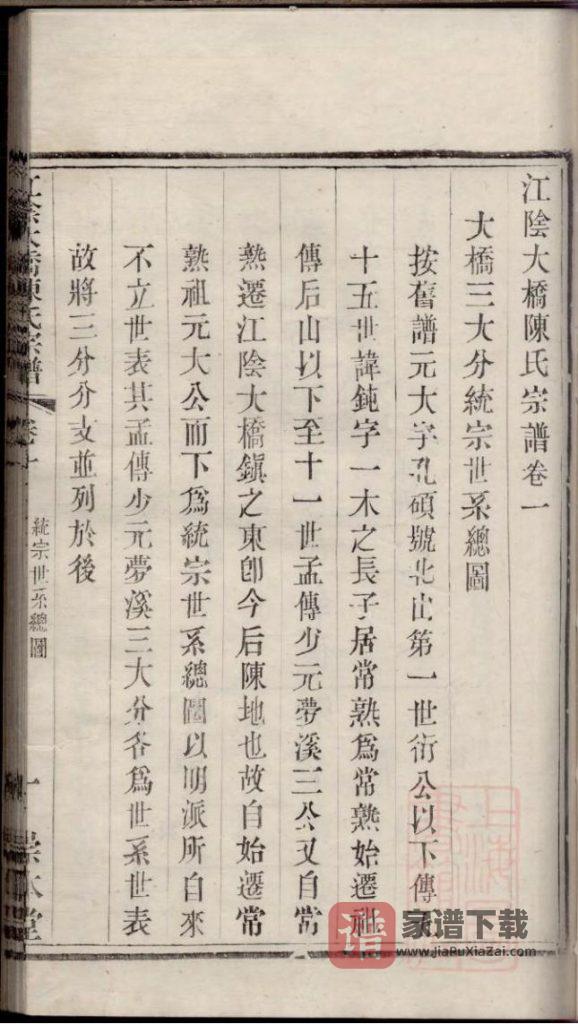 江陰大橋陳氏宗譜卷一
大橋三大分統宗世系總圖
按舊譜元大字孔碩號北山第一世衍公以下傳
十五世諱鈍字一木之長子居常熟為常熟始遷祖
傳后山以下至十一世孟傳少元夢溪三公又自常
熟遷江陰大橋鎮之東卽今后陳地也故自始遷常
熟祖元大公而下為統宗世系總圖以明派所自來
不立世表其孟傳少元夢溪三大分各為世系世表
故將三分分支並列於後
大橋陳氏宗譜
統宗世系總圖
家谱下载
www.JiaPuXiaZai.com
譜